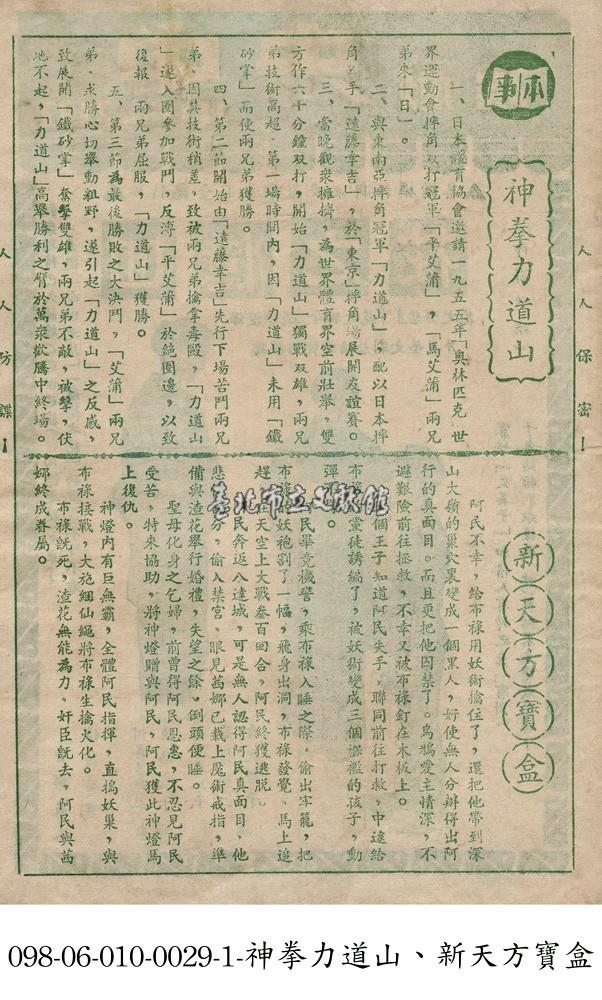 本事
神拳力道山
一、日本體育協會邀請一九五五年「奧林匹克」世
界運動會摔角双打冠軍「平艾蒲」，「馬艾蒲」兩兄
弟來「日」。
二、與東南亞摔角冠軍「力道山」，配以日本摔
角名手「遠藤幸吉」，於「東京」摔角場展開友誼賽。
三、當晚觀衆擁擠，為世界體育界空前壯舉，雙
方作六十分鐘双打，開始「力道山」獨戰双雄，兩兄
弟技術高超，第一場時間內，因「力道山」未用「鐵
砂掌」而使兩兄弟獲勝。
四、第二節開始由「遠藤幸吉」先行下場苦鬥兩兄
弟，因其技術稍差，致被兩兄弟擒拿毒毆，「力道山
」遂入圈參加戰鬥，反濤「平艾蒲」於繩圈邊，以致
後報，兩兄弟屈服，「力道山」獲勝。
五、第三節為最後勝敗之大決鬥，「艾蒲」兩兄
弟，求勝心切舉動粗野，遂引起「力道山」之反感，
致展開「鐵砂掌」奮擊雙雄，兩兄弟不敵，被擊，伏
地不起，「力道山」高舉勝利之臂於萬衆歡騰中終場。
新天方寶盒
阿民不幸，給布祿用妖術擒住了，還把他帶到深
山大嶺的巢穴裏變成一個黑人，好使無人分辦得出阿
行的真面目。而且更把他囚禁了。烏鴉愛主情深，不
避艱險前往拯救，不幸又被布祿釘在木板上。
個王子知道阿民失手，聯同前往打救，中途給
布祿黨徒誘騙了，被妖術變成三個襤褸的孩子，動
彈
民畢竟機警，乘布祿入睡之際，偷出牢籠，把
布祿妖袍割了一幅，飛身出洞，布祿發覺，馬上追
趕，在天空上大戰叁百回合，阿民終獲逃脫。
民奔返八達城，可是無人認得阿民真面目，他
悲分，偷入禁宮，眼見茜娜已載上魔術戒指，準
備與渣花舉行婚禮，失望之餘，倒頭便睡。
聖母化身之乞婦，前曾得阿民恩惠，不忍見阿民
受苦，特來協助，將神燈贈與阿民，阿民獲此神燈馬
上復仇。
神燈內有巨無霸，全體阿民指揮，直搗妖巢，與
布祿接戰，大施綑仙繩將布祿生擒火化。
布祿旣死，渣花無能為力，奸臣旣去，阿民與茜
娜終成眷屬。
人人保密！
人人防諜！
臺北市立文獻館
098-06-010-0029-1-神拳力道山、新天方寶盒